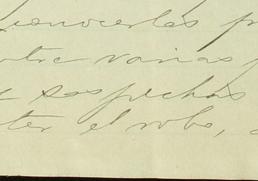 conocerlas p
ntre varias p
sospechas
ter el robo,